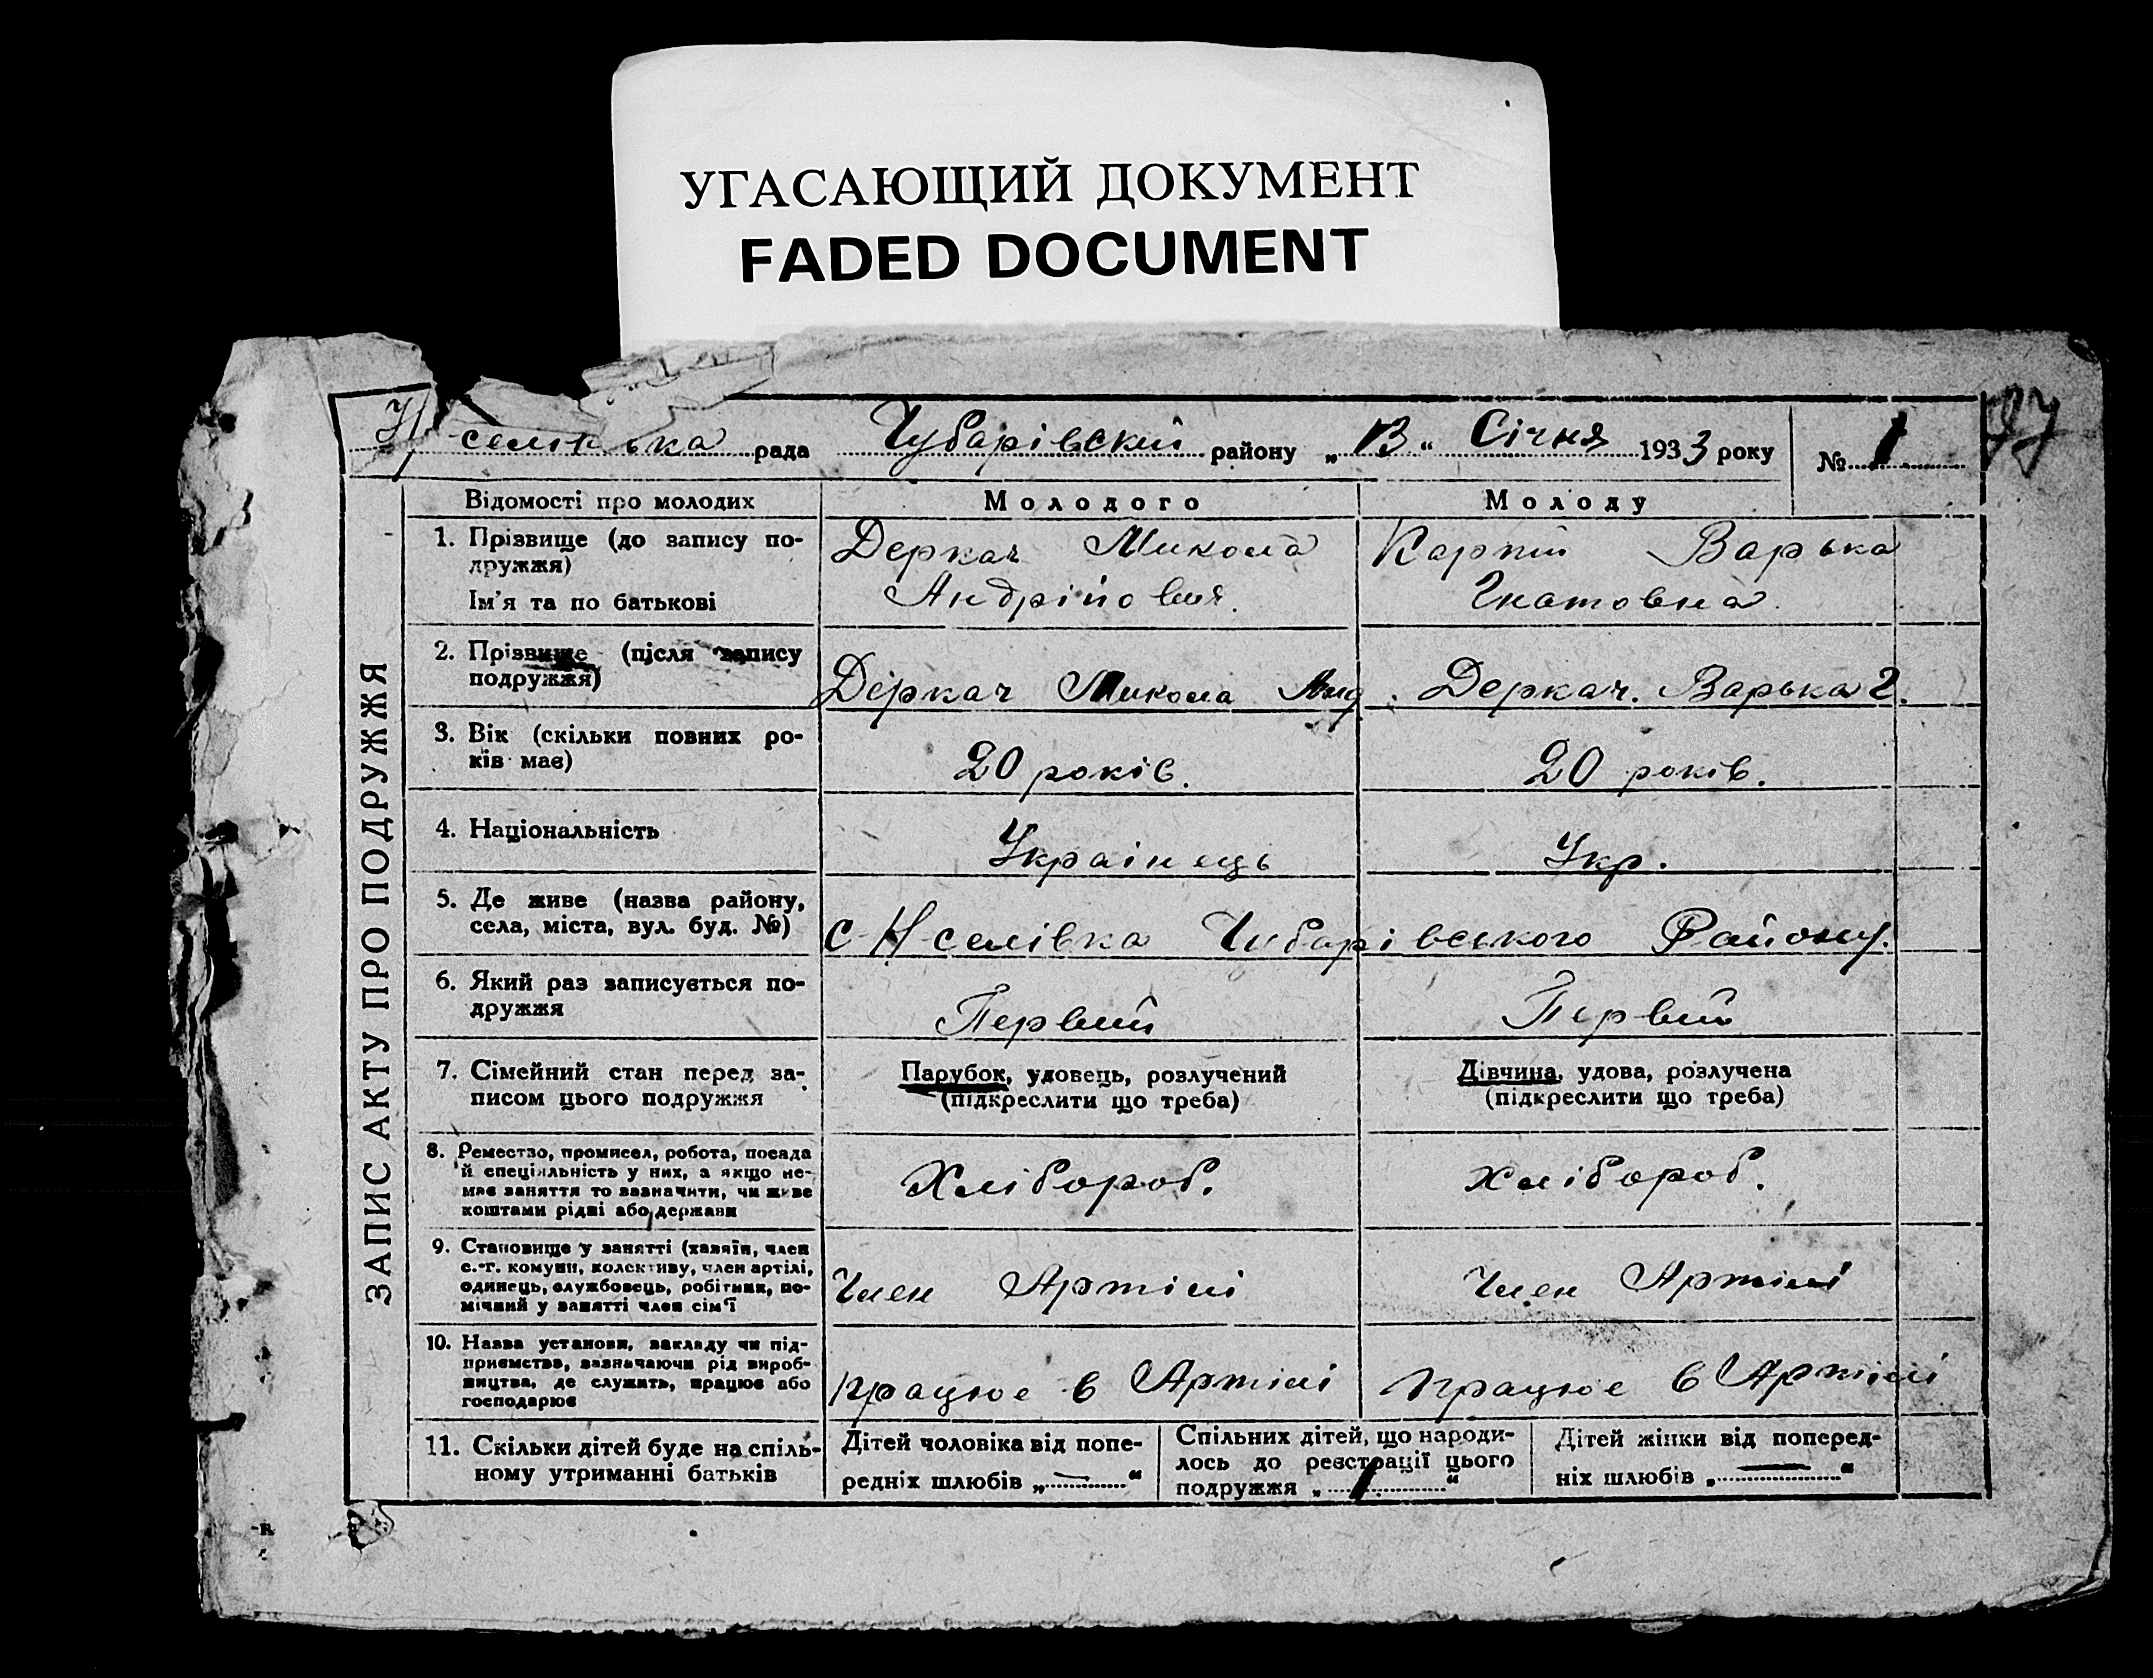 УГАСАЮЩИЙ ДОКУМЕНТ
FADED DOCUMENT
97
рада Чубарівский району „13“ Січня 1933 року № 1
ЗАПИС АКТУ ПРО ПОДРУЖЖЯ
Відомості про молодих Молодого Молоду
1. Прізвище (до запису по-
дружжя)
Ім'я та по батькові
Деркач Микола
Андрійович.
Карпій Варька
Гнатовна.
2. Прізвище (після запису
подружжя)
Деркач Микола Анд. Деркач. Варька Г.
3. Вік (скільки повних ро-
ків має)
20 років. 20 років.
4. Національність
Українець Укр.
5. Де живе (назва району,
села, міста, вул. буд. №)
с Н-селівка Чубарівського Району.
6. Який раз записується по-
дружжя
Первий Первий
7. Сімейний стан перед за-
писом цього подружжя
Парубок, удовець, розлучений
(підкреслити що треба)
Дівчина, удова, розлучена
(підкреслити що треба)
8. Ремество, промисел, робота, посада
й спеціяльність у них, а якщо не-
має заняття то зазначити, чи живе
коштами рідні або держави
Хлібороб. Хлібороб.
9. Становище у занятті (хазяїн, член
с.-г. комуни, колективу, член артілі,
одинець, службовець, робітник, по-
мічний у занятті член сім'ї
Член Артілі Член Артілі
10. Назва установи, закладу чи під-
приємства, зазначаючи рід вироб-
ництва, де служить, працює або
господарює
працює в Артілі працює в Артілі
11. Скільки дітей буде на спіль-
ному утриманні батьків
Дітей чоловіка від попе-
редніх шлюбів „—“
Спільних дітей, що народи-
лось до реєстрації цього
подружжя „1.“
Дітей жінки від поперед-
ніх шлюбів „—“